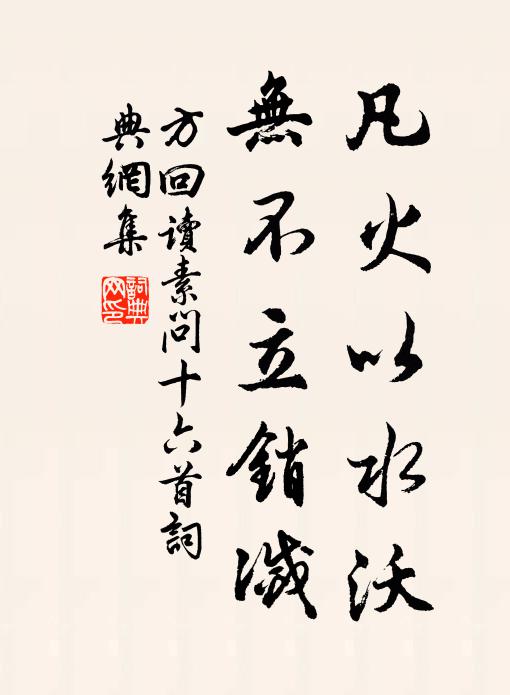 凡火以水沃
無不立銷滅
方回讀素問十六首詞
典網集
詞典网印